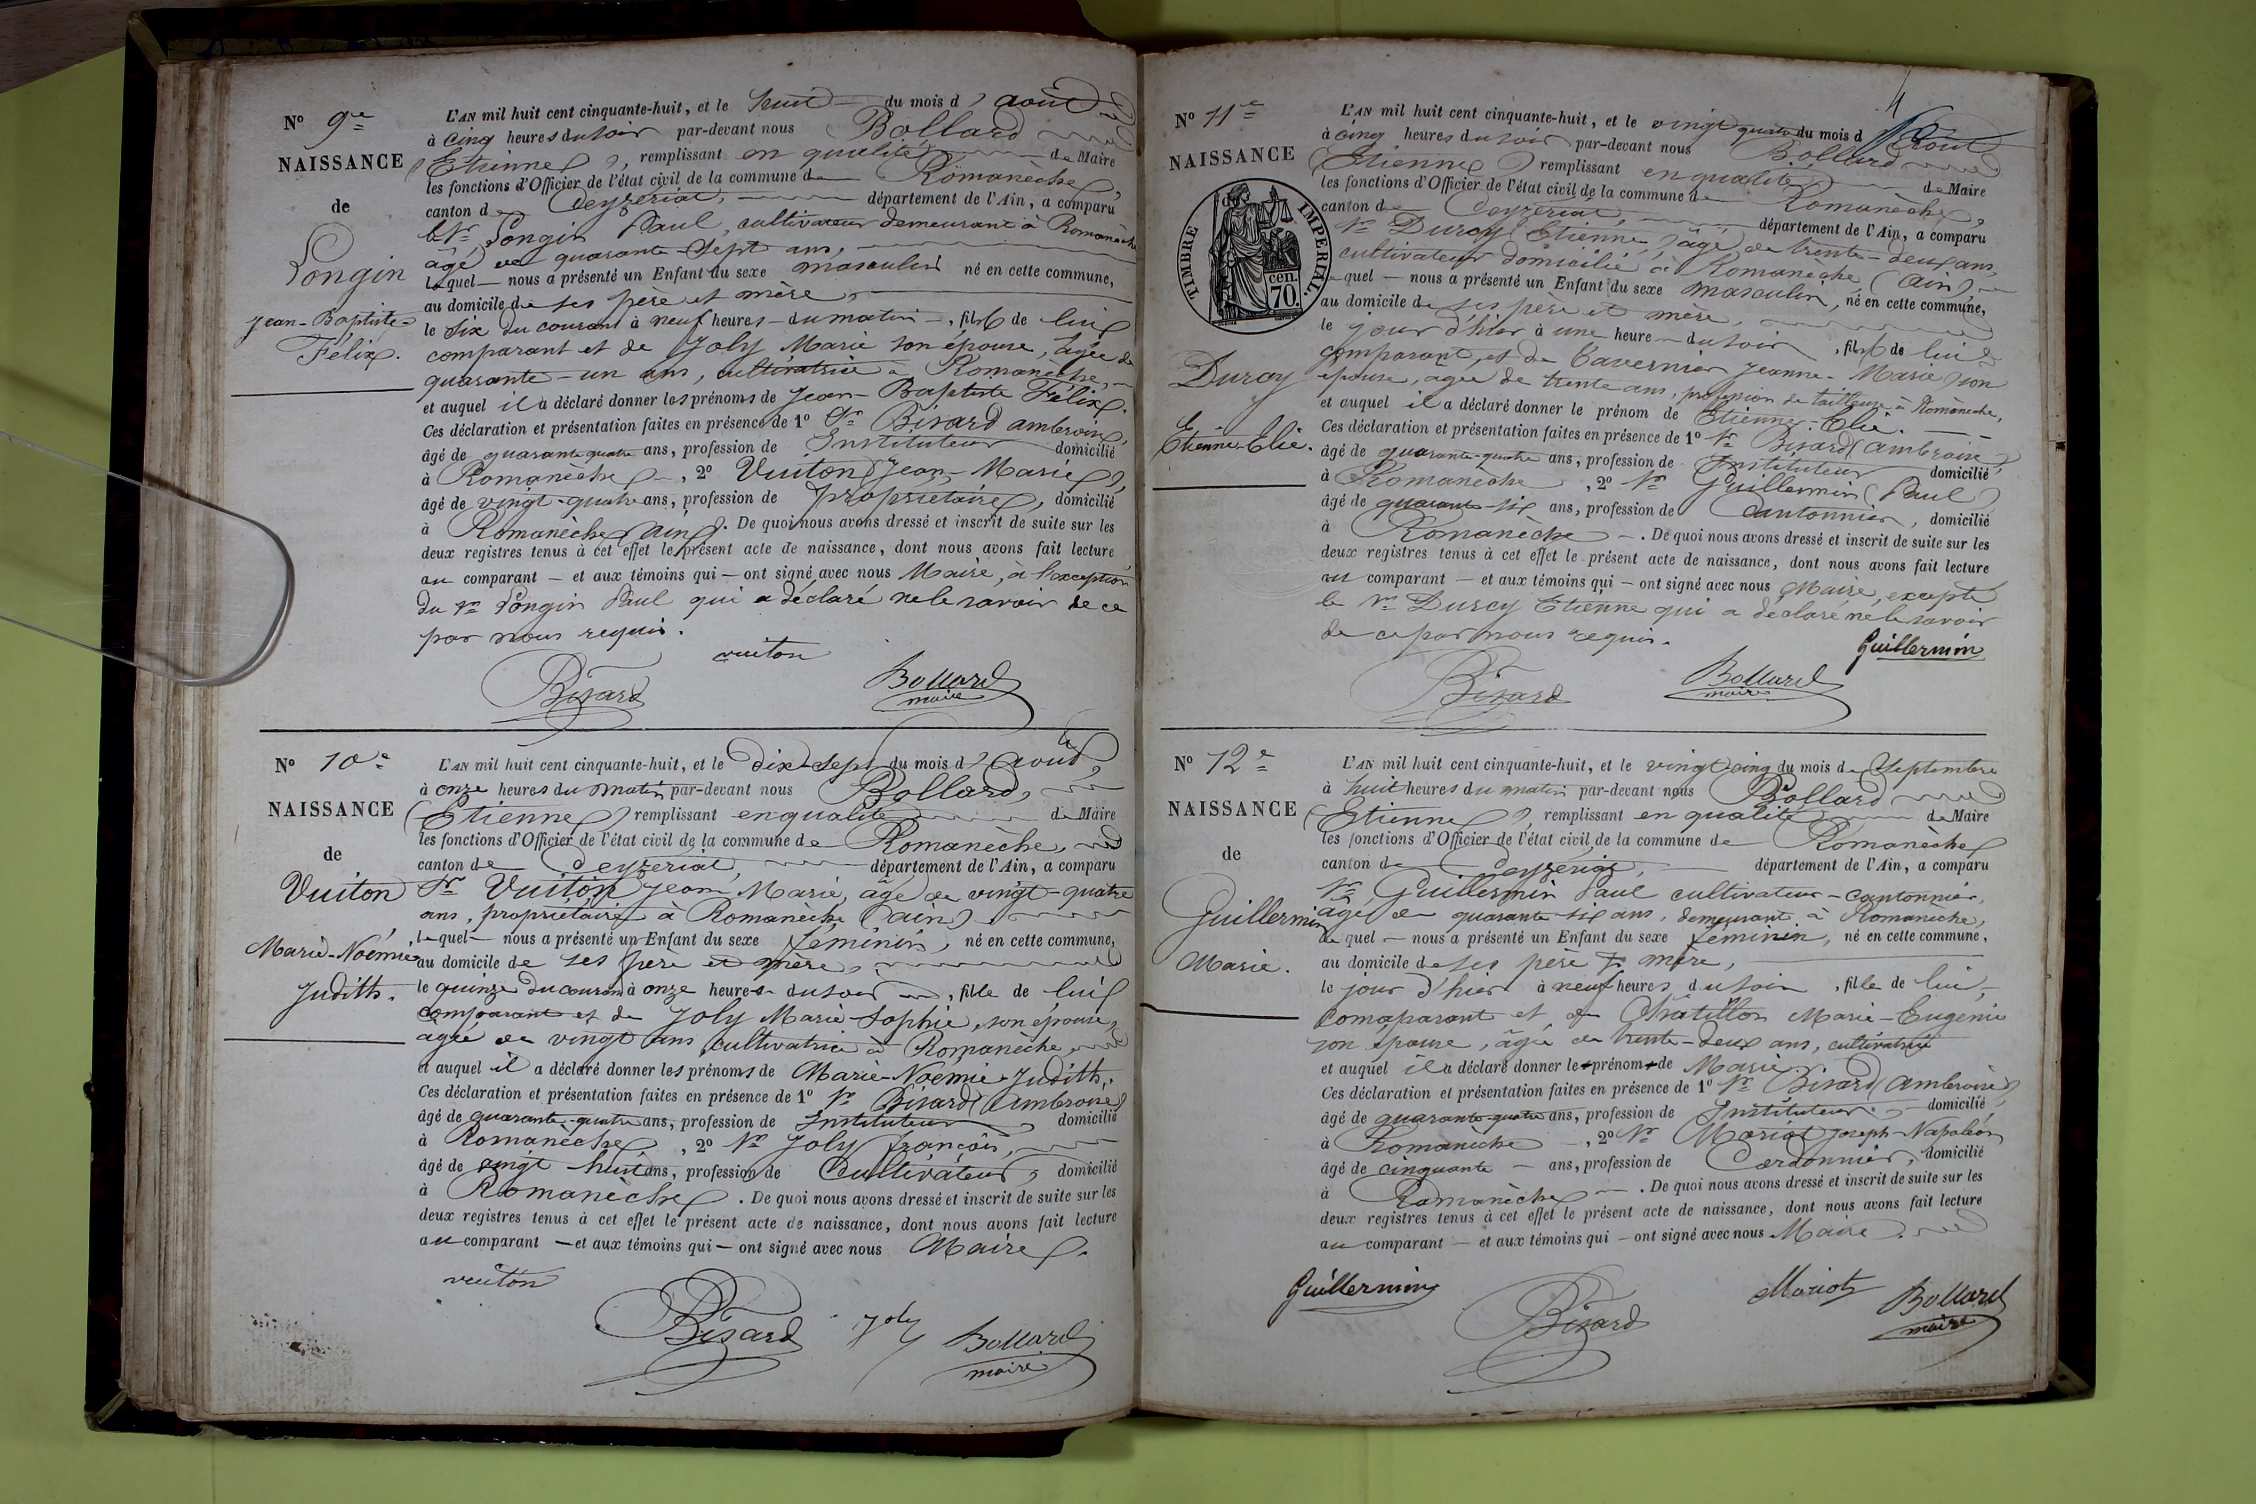 N° 9e
NAISSANCE
de
Longin
Jean-Baptiste-
Félix.
L'AN mil huit cent cinquante-huit, et le huit du mois d'août
à cinq heures du soir par-devant nous Bollard
(Etienne), remplissant en qualité de Maire
les fonctions d'Officier de l'état civil de la commune de Romanèche,
canton de Ceyzeriat, département de l'Ain, a comparu
le Sr Longin Paul, cultivateur demeurant à Romanèche
âgé de quarante-sept ans,
lequel — nous a présenté un Enfant du sexe masculin né en cette commune,
au domicile de ses père et mère,
le six du courant à neuf heures du matin, fils de lui
comparant et de Joly Marie son épouse, âgée de
quarante-un ans, cultivatrice à Romanèche,
et auquel il a déclaré donner les prénoms de Jean-Baptiste Félix.
Ces déclaration et présentation faites en présence de 1° Sr Bisard ambroise,
âgé de quarante quatre ans, profession de Instituteur domicilié
à Romanèche, 2° Vuiton (Jean-Marie),
âgé de vingt-quatre ans, profession de propriétaire, domicilié
à Romanèche (ain). De quoi nous avons dressé et inscrit de suite sur les
deux registres tenus à cet effet le présent acte de naissance, dont nous avons fait lecture
au comparant — et aux témoins qui — ont signé avec nous Maire, à l'exception
du Sr Longin Paul qui a déclaré ne le savoir de ce
par nous requis.
vuiton
Bisard
Bollard
maire
N° 10e
NAISSANCE
de
Vuiton
Marie-Noémie
Judith.
L'AN mil huit cent cinquante-huit, et le dix-sept du mois d'août,
à onze heures du matin par-devant nous Bollard,
(Etienne) remplissant en qualité de Maire
les fonctions d'Officier de l'état civil de la commune de Romanèche,
canton de Ceyzeriat, département de l'Ain, a comparu
Sr Vuiton Jean Marie, âgé de vingt-quatre
ans, propriétaire à Romanèche (ain)
lequel — nous a présenté un Enfant du sexe féminin, né en cette commune,
au domicile de ses père et mère,
le quinze du courant à onze heures du soir, fille de lui
comparant et de Joly Marie Sophie, son épouse,
âgée de vingt ans cultivatrice à Romanèche
et auquel il a déclaré donner les prénoms de Marie-Noémie-Judith.
Ces déclaration et présentation faites en présence de 1° Sr Bisard (Ambroise)
âgé de quarante-quatre ans, profession de Instituteur, domicilié
à Romanèche, 2° Sr Joly françois,
âgé de vingt huit ans, profession de Cultivateur, domicilié
à Romanèche. De quoi nous avons dressé et inscrit de suite sur les
deux registres tenus à cet effet le présent acte de naissance, dont nous avons fait lecture
au comparant — et aux témoins qui — ont signé avec nous Maire.
vuiton
Bisard
Joly
Bollard
maire
4
N° 11e
NAISSANCE
TIMBRE IMPERIAL
70 cen.
Duroy
Etienne-Elie.
L'AN mil huit cent cinquante-huit, et le vingt quatre du mois d'Août
à cinq heures du soir par-devant nous Bollard
(Etienne) remplissant en qualité de Maire
les fonctions d'Officier de l'état civil de la commune de Romanèche,
canton de Ceyzeriat, département de l'Ain, a comparu
Sr Duroy Etienne, âgé de trente-deux ans,
cultivateur domicilié à Romanèche (ain)
lequel — nous a présenté un Enfant du sexe masculin, né en cette commune,
au domicile de ses père et mère,
le jour d'hier à une heure du soir, fils de lui
comparant, et de Tavernier Jeanne-Marie son
épouse, âgée de trente ans, profession de tailleuse à Romanèche,
et auquel il a déclaré donner le prénom de Etienne-Elie.
Ces déclaration et présentation faites en présence de 1° Sr Bisard (ambroise)
âgé de quarante-quatre ans, profession de Instituteur domicilié
à Romanèche, 2° Sr Guillermin (Paul)
âgé de quarante-six ans, profession de Cantonnier, domicilié
à Romanèche. De quoi nous avons dressé et inscrit de suite sur les
deux registres tenus à cet effet le présent acte de naissance, dont nous avons fait lecture
au comparant — et aux témoins qui — ont signé avec nous Maire, excepté
le Sr Duroy Etienne qui a déclaré ne le savoir
de ce par nous requis.
Guillermin
Bisard
Bollard
maire
N° 12e
NAISSANCE
de
Guillermin
Marie.
L'AN mil huit cent cinquante-huit, et le vingt-cinq du mois de Septembre
à huit heures du matin par-devant nous Bollard
(Etienne), remplissant en qualité de Maire
les fonctions d'Officier de l'état civil de la commune de Romanèche
canton de Ceyzeriat, département de l'Ain, a comparu
Sr Guillermin Paul cultivateur-cantonnier,
âgé de quarante-six ans, demeurant à Romanèche,
lequel — nous a présenté un Enfant du sexe féminin, né en cette commune,
au domicile de ses père & mère,
le jour d'hier à neuf heures du soir, fille de lui,
comaparant et de Châtillon Marie-Eugénie
son épouse, âgée de trente-deux ans, cultivatrice
et auquel il a déclaré donner le prénom de Marie.
Ces déclaration et présentation faites en présence de 1° Sr Bisard (ambroise)
âgé de quarante-quatre ans, profession de Instituteur, domicilié
à Romanèche, 2° Sr Moriot Joseph-Napoléon
âgé de cinquante — ans, profession de Cordonnier, domicilié
à Romanèche. De quoi nous avons dressé et inscrit de suite sur les
deux registres tenus à cet effet le présent acte de naissance, dont nous avons fait lecture
au comparant — et aux témoins qui — ont signé avec nous Maire.
Guillermin
Bisard
Moriot
Bollard
maire